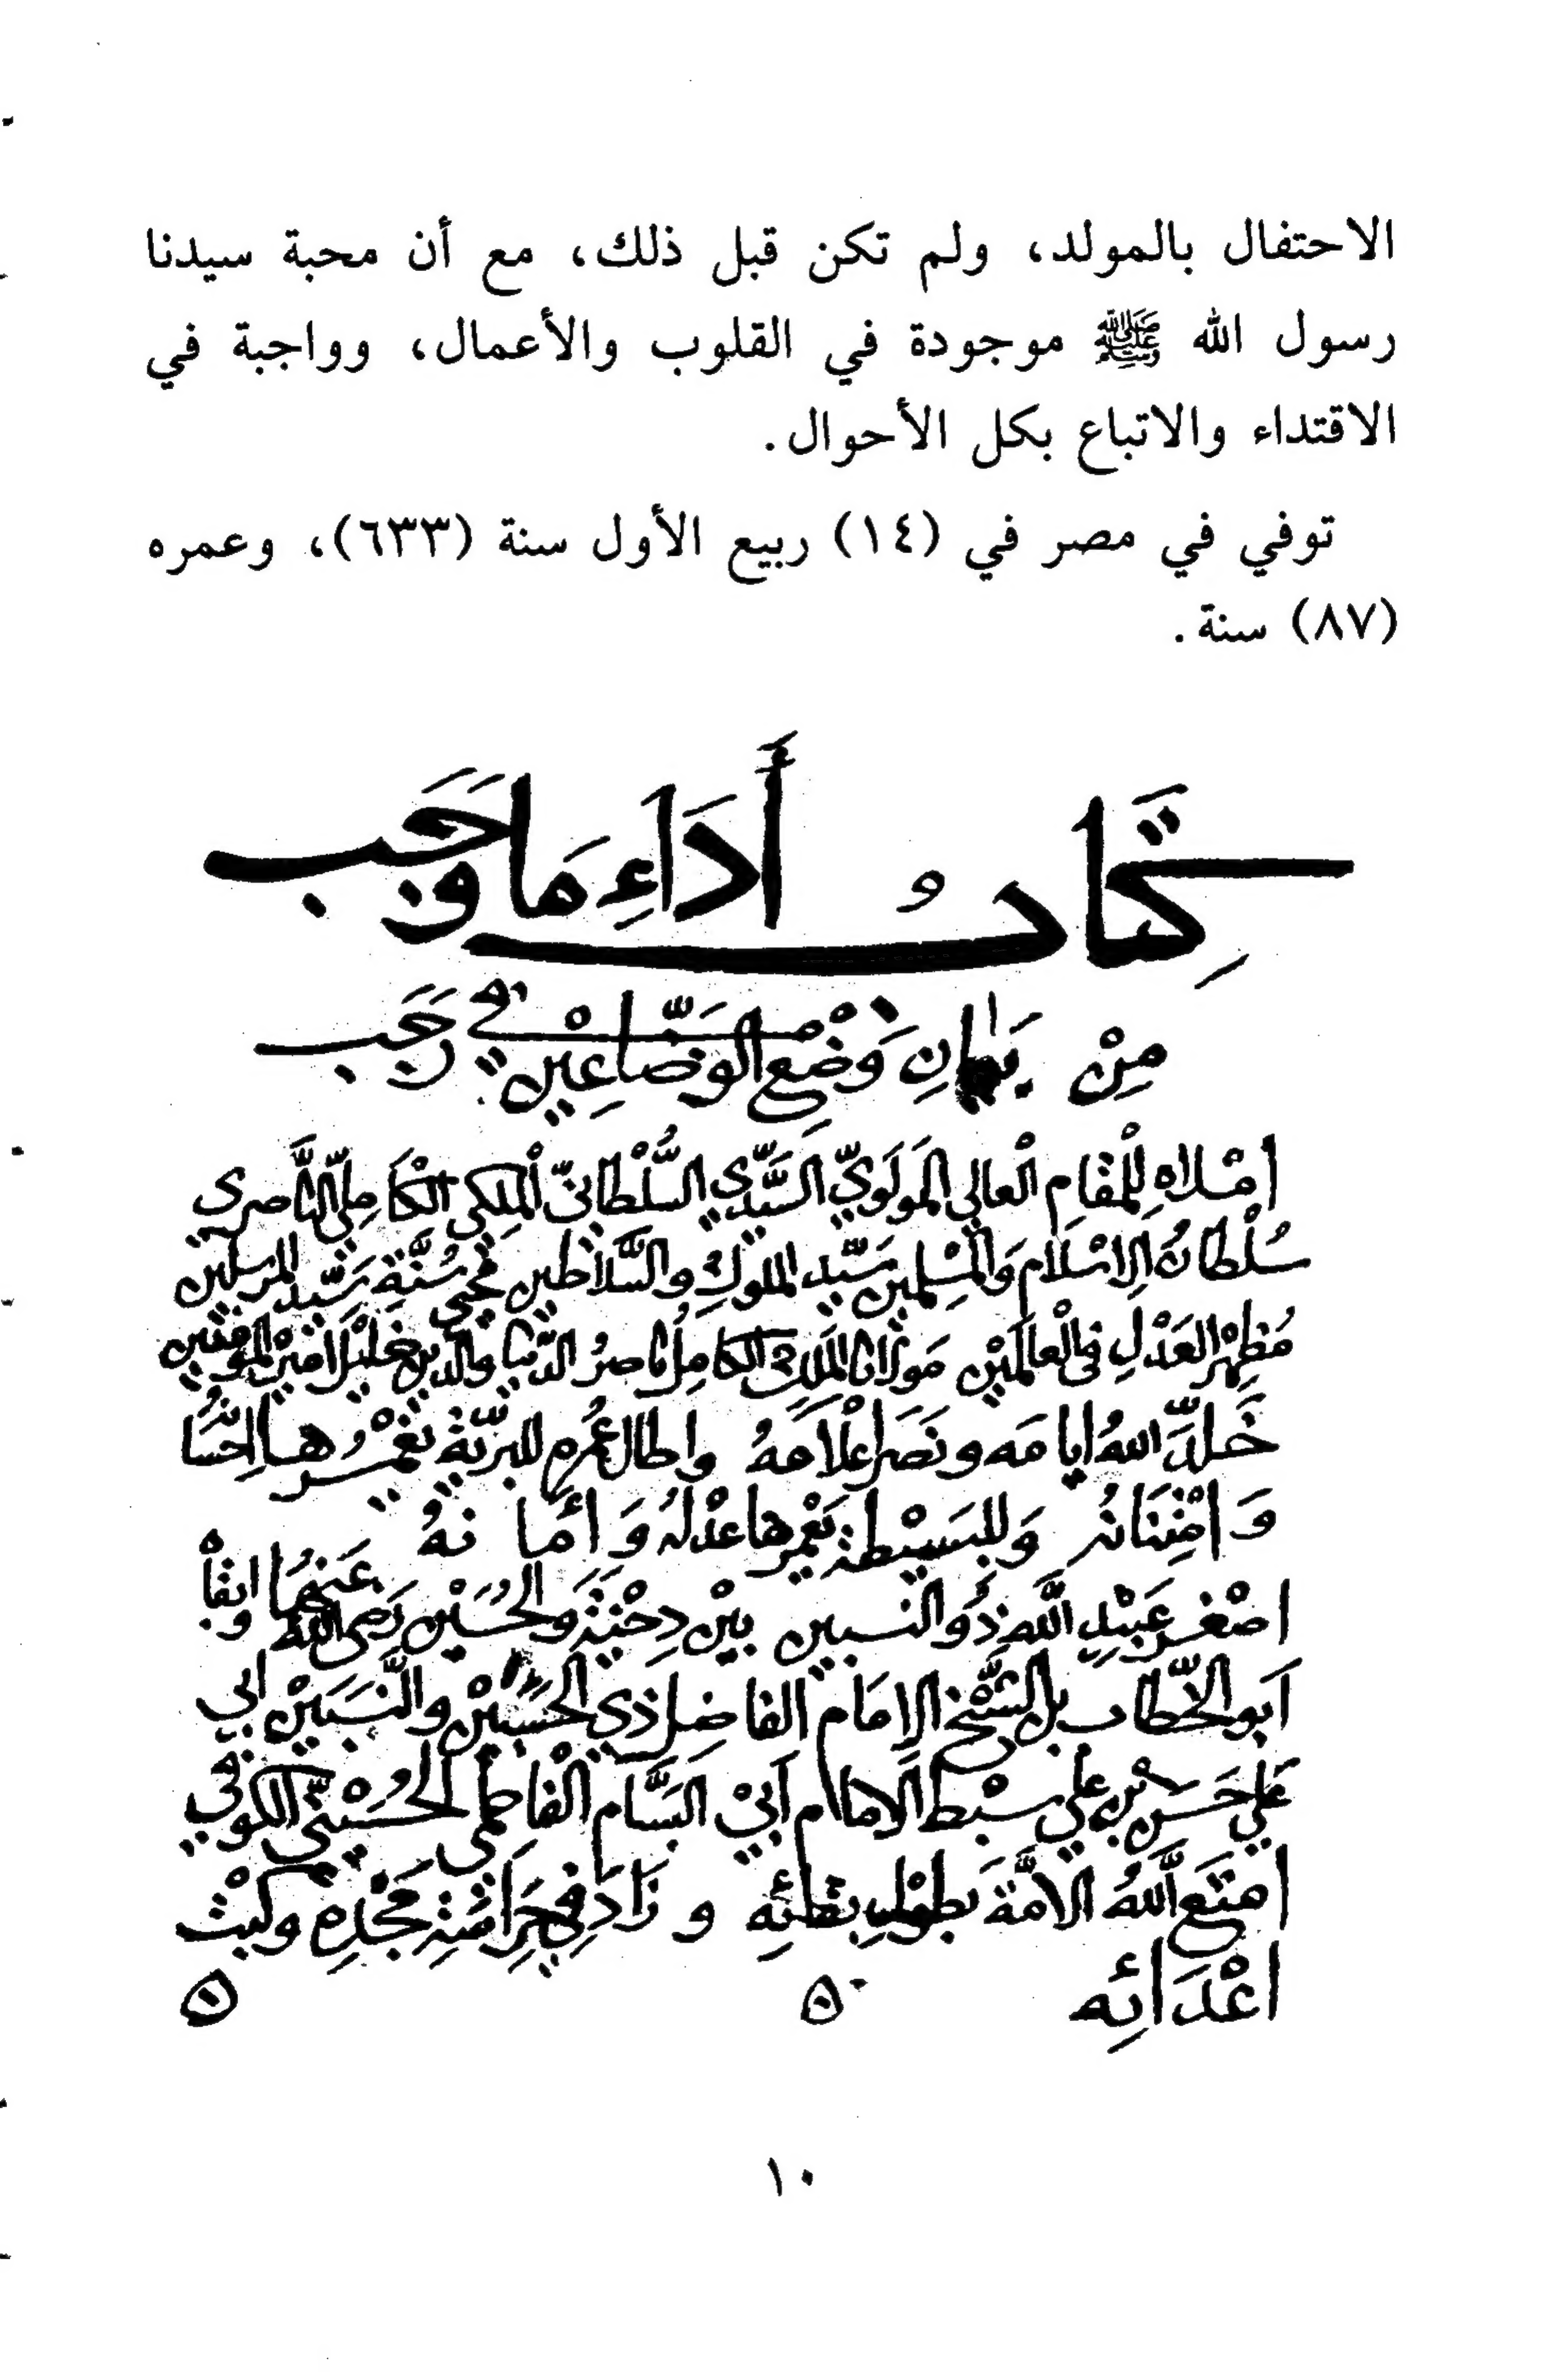 الاحتفال بالمولد، ولم تكن قبل ذلك، مع أن محبة سيدنا
رسول الله ﷺ موجودة في القلوب والأعمال، وواجبة في
الاقتداء والاتباع بكل الأحوال.
توفي في مصر في (١٤) ربيع الأول سنة (٦٣٣)، وعمره
(٨٧) سنة.
كِتَابُ أَدَاءِ مَا وَجَب
مِنْ بَيَانِ وَضْعِ الوَضَّاعِيْن في رَجَب
امْلاه لِلمْقَامِ الْعالي المَولَوِيّ السَّيِّدِي السُّلْطانيّ الْمَلِكي الْكَامِليّ النَّاصري
سُلْطانُ الاسْلَام وَالمُسْلِمين سَيّد الملوك والسَّلاطين مُحيي سُنَّةِ سَيّد المرسلين
مُظهِر العَدْلِ في الْعالَمَيْن مَوْلانا المَلك الكامِل ناصِرُ الدّنيا والدين خليل امير المومنين
خَلَّدَ اللهُ ايامَه ونَصَر اعْلَامَهُ واطال عُمرَه للبريّة يَغْمُرُها احْسَانُه
وَامْتِنَانُه وَلِلبَسيْطة يَعْمُرها عدْلُهُ وَأمانهُ
اصْغر عَبيْدِ اللهِ ذُو النسبين بيْن دِحْيَةَ وَالحُسَيْن رَضي الله عَنهُمَا
ابَو الخَطّاب بل الشَّيْخ الامَام الفاضِل ذي الحَسَبَيْن والنَّسَبَيْن ابي
عَلي حَسَن بن علي سِبْط الامام أبيْ البَسَّام الْفَاطمي الحُسَيْنيّ الكوفي
امتَعَ اللهُ الامَّة بطوْل بقائِه وزَادَ في حَرَاسَةِ مَجْدِه وكبْت
اعْدَائِه ه ه
١٠